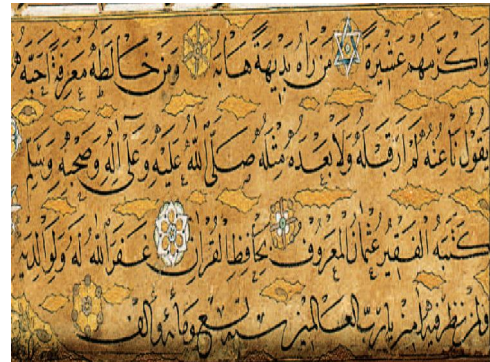 وَاَكْرَمُهُمْ عَشِيرَةً مَنْ رَاٰهُ بَدِيهَةً هَابَهُ وَمَنْ خَالَطَهُ مَعْرِفَةً اَحَبَّهُ
يَقُولُ نَاعِتُهُ لَمْ اَرَ قَبْلَهُ وَلَا بَعْدَهُ مِثْلَهُ صَلَّى اللّٰهُ عَلَيْهِ وَعَلٰى اٰلِهِ وَصَحْبِهِ وَسَلَّمَ
كَتَبَهُ الْفَقِيرُ عُثْمَانُ الْمَعْرُوفُ بِحَافِظِ الْقُرْاٰنِ غَفَرَ اللّٰهُ لَهُ وَلِوَالِدَيْهِ
وَلِمَنْ نَظَرَ فِيهِ اٰمِينَ يَا رَبَّ الْعَالَمِينَ سنة تسع ومائة والف